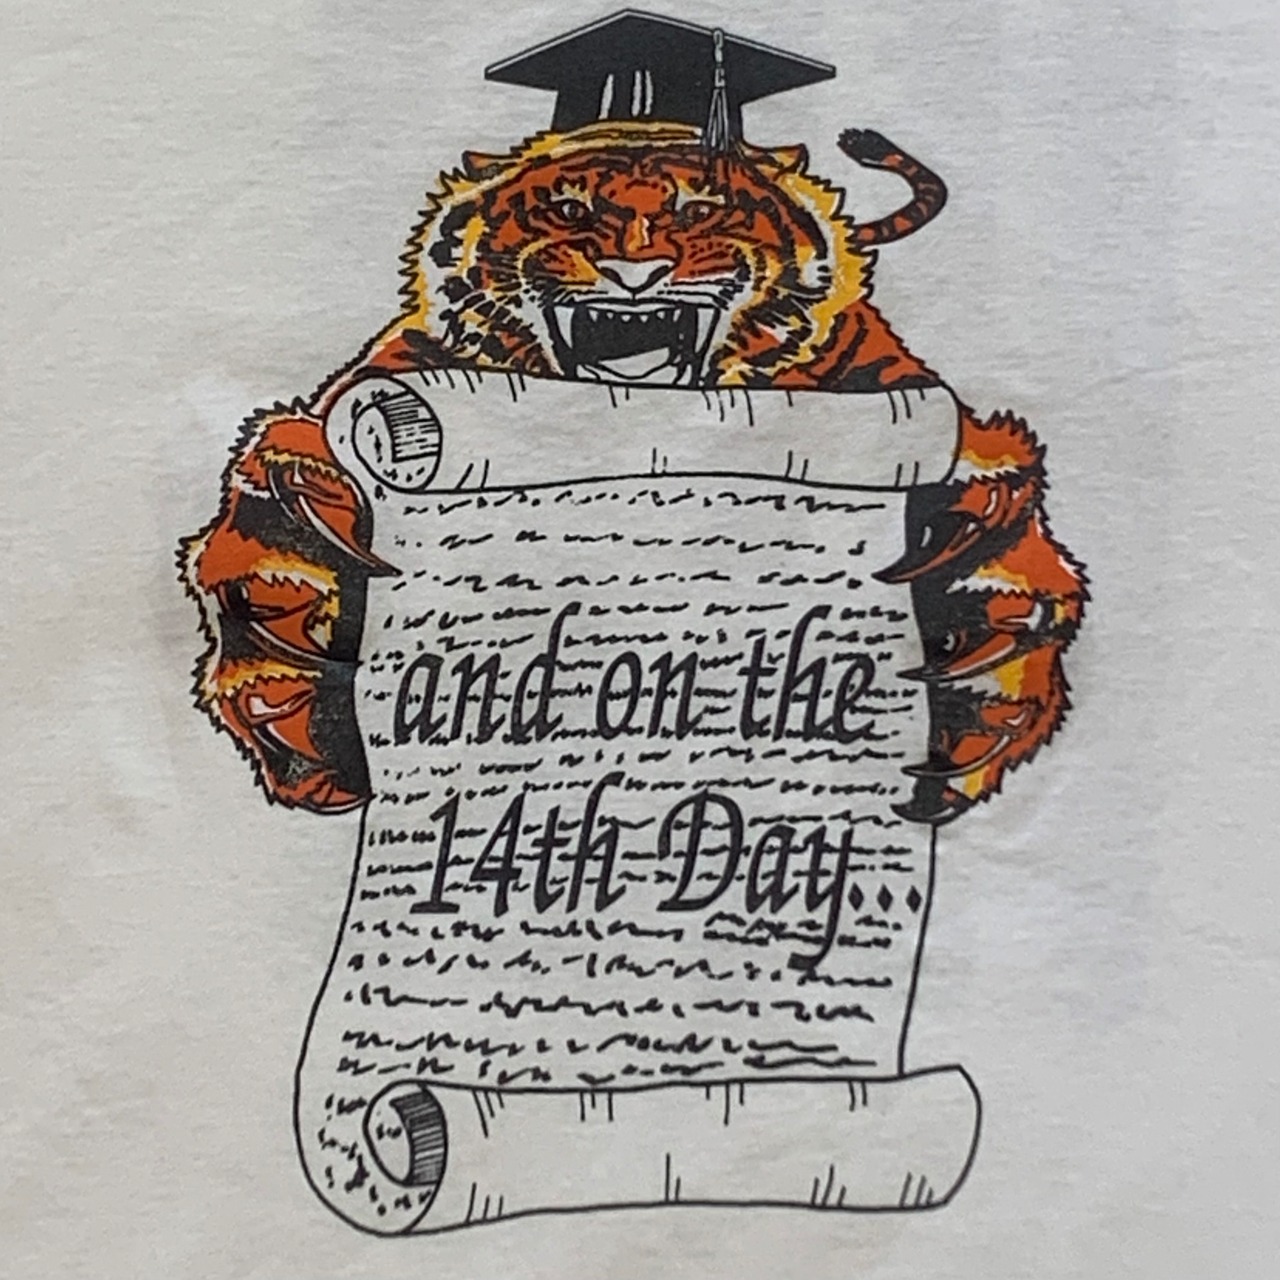 and on the
14th Day...